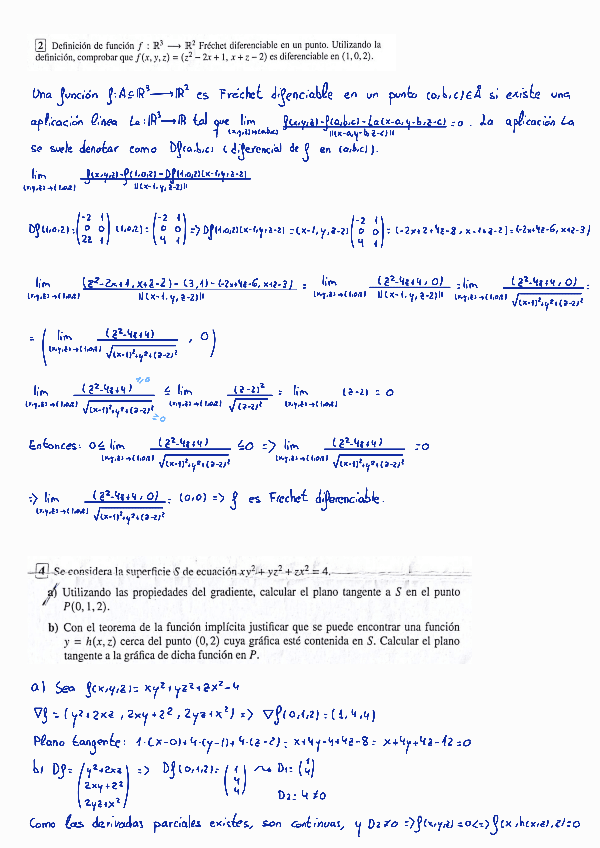 2 Definición de función f : ℝ³ ⟶ ℝ² Fréchet diferenciable en un punto. Utilizando la
definición, comprobar que f(x, y, z) = (z² − 2x + 1, x + z − 2) es diferenciable en (1, 0, 2).
Una función f:A⊆ℝ³⟶ℝ² es Fréchet difenciable en un punto (a,b,c)∈Å si existe una
aplicación linea La:ℝ³→ℝ tal que lim (x,y,z)→(a,b,c) f(x,y,z)-f(a,b,c)-La(x-a,y-b,z-c)/||(x-a,y-b,z-c)|| = 0. La aplicación La
se suele denotar como Df(a,b,c) (diferencial de f en (a,b,c)).
lim (x,y,z)→(1,0,2) f(x,y,z)-f(1,0,2)-Df(1,0,2)(x-1,y,z-2)/||(x-1,y,z-2)||
Df(1,0,2)=(-2 1; 0 0; 2z 1)(1,0,2)=(-2 1; 0 0; 4 1) => Df(1,0,2)(x-1,y,z-2) = (x-1,y,z-2)(-2 1; 0 0; 4 1) = (-2x+2+4z-8, x-1+z-2) = (-2x+4z-6, x+z-3)
lim (x,y,z)→(1,0,2) (z²-2x+1, x+z-2)-(3,1)-(-2x+4z-6, x+z-3)/||(x-1,y,z-2)|| = lim (x,y,z)→(1,0,2) (z²-4z+4, 0)/||(x-1,y,z-2)|| = lim (x,y,z)→(1,0,2) (z²-4z+4, 0)/√(x-1)²+y²+(z-2)² =
= ( lim (x,y,z)→(1,0,2) (z²-4z+4)/√(x-1)²+y²+(z-2)² , 0 )
lim (x,y,z)→(1,0,2) (z²-4z+4) ≥0/√(x-1)²+y²+(z-2)² ≥0 ≤ lim (x,y,z)→(1,0,2) (z-2)²/√(z-2)² = lim (x,y,z)→(1,0,2) (z-2) = 0
Entonces: 0 ≤ lim (x,y,z)→(1,0,2) (z²-4z+4)/√(x-1)²+y²+(z-2)² ≤0 => lim (x,y,z)→(1,0,2) (z²-4z+4)/√(x-1)²+y²+(z-2)² =0
=> lim (x,y,z)→(1,0,2) (z²-4z+4, 0)/√(x-1)²+y²+(z-2)² = (0,0) => f es Frechet diferenciable.
4 Se considera la superficie S de ecuación xy² + yz² + zx² = 4.
a) Utilizando las propiedades del gradiente, calcular el plano tangente a S en el punto
P(0, 1, 2).
b) Con el teorema de la función implícita justificar que se puede encontrar una función
y = h(x, z) cerca del punto (0, 2) cuya gráfica esté contenida en S. Calcular el plano
tangente a la gráfica de dicha función en P.
a) Sea f(x,y,z)= xy²+yz²+zx²-4
∇f = (y²+2xz, 2xy+z², 2yz+x²) => ∇f(0,1,2)=(1,4,4)
Plano tangente: 1·(x-0)+4·(y-1)+4·(z-2)= x+4y-4+4z-8 = x+4y+4z-12=0
b) Df = (y²+2xz; 2xy+z²; 2yz+x²) => Df(0,1,2)=(1; 4; 4) ⇝ D1: (1; 4)
D2= 4 ≠0
Como las derivadas parciales existes, son continuas, y D2≠0 => f(x,y,z)=0 <=> f(x,h(x,z),z)=0